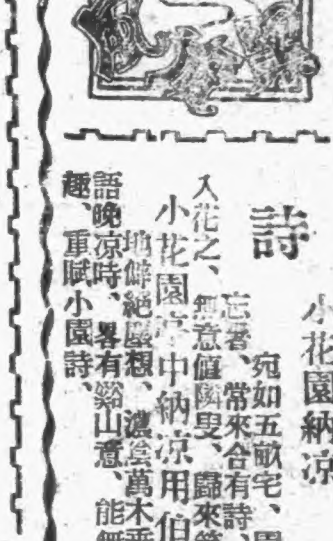 詩
小花園納涼
宛如五畝宅、
忘暑、常來合有詩、
入花之、無意値隣叟、歸來
小花園 中納涼用伯
地僻絶塵想、濃陰萬木垂
語晚凉時、畧有谿山意、能無
趣、重賦小園詩、